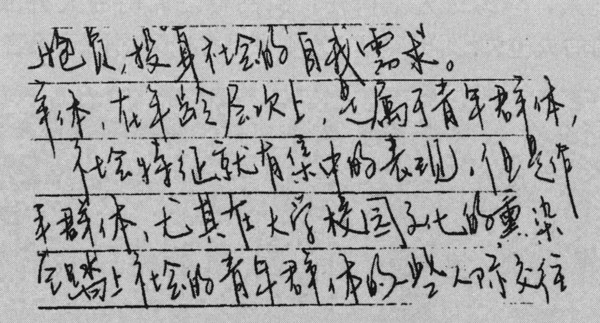 抱负，投身社会的自我需求。
年体，在年龄层次上，是属于青年群体，
社会特征就有集中的表现，但是作
年群体，尤其在大学校园文化的熏染
全踏上社会的青年群体的一些人际交往